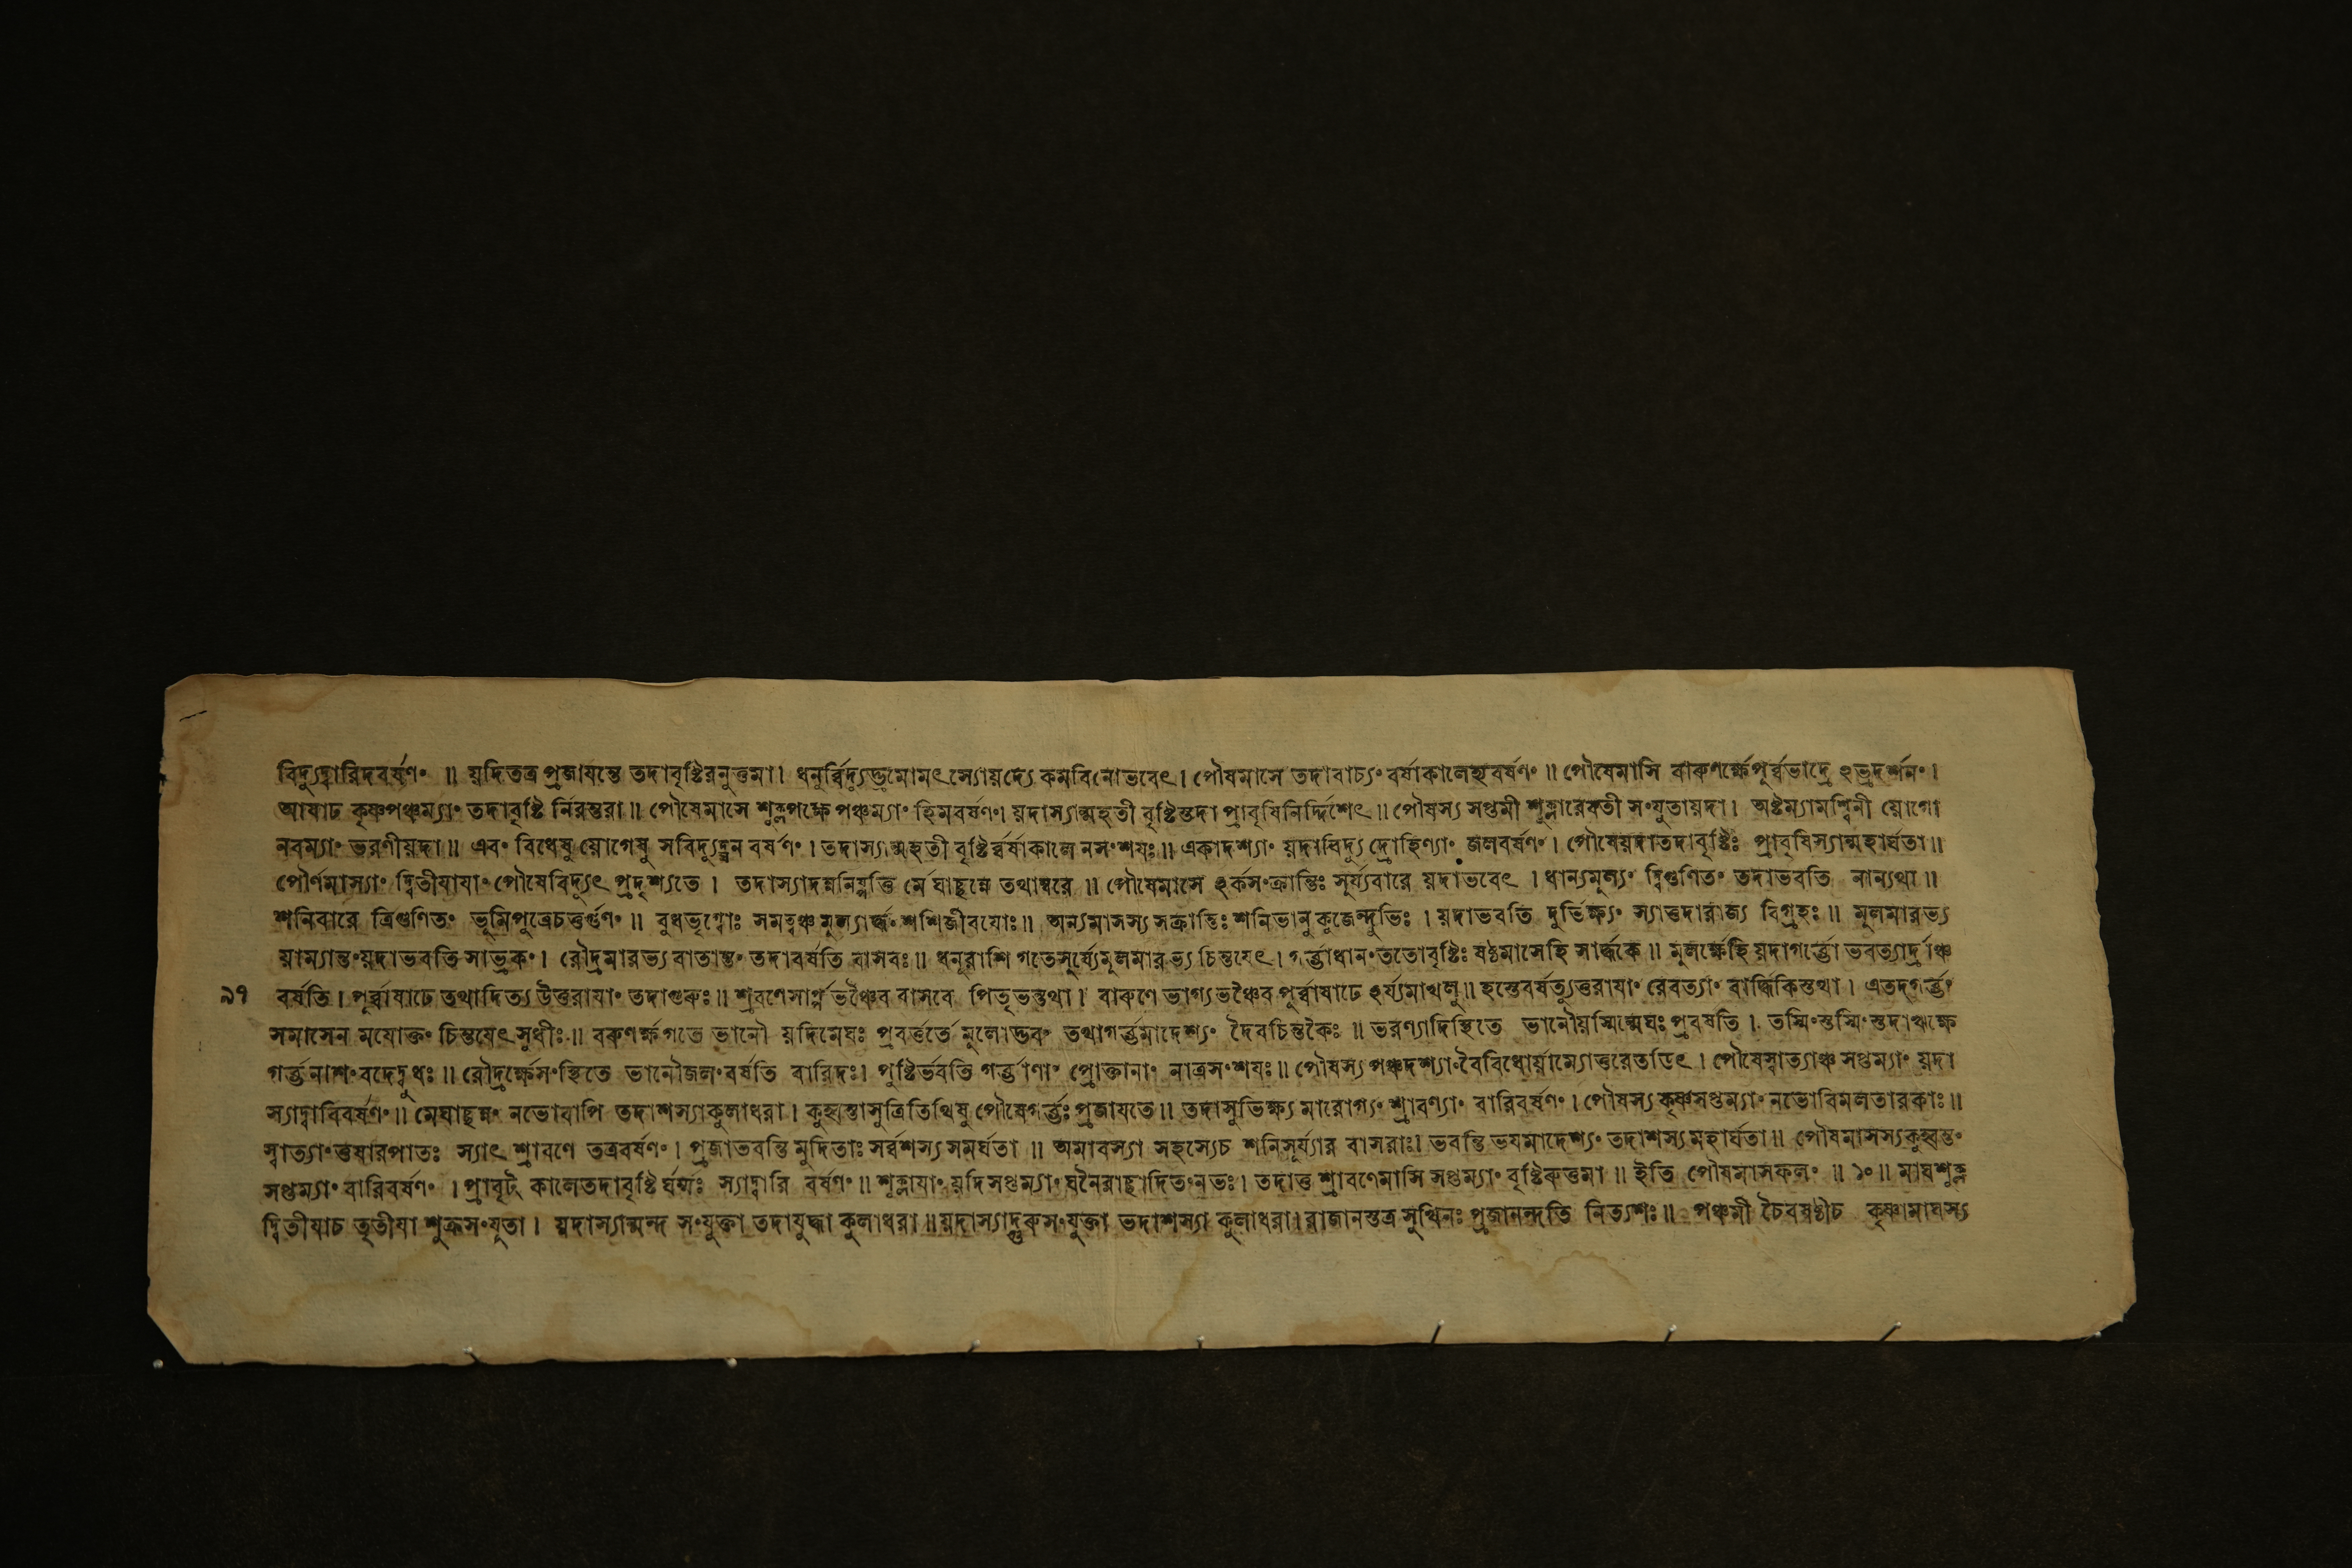 বিদ্যুদ্বারিদবর্ষণং ॥ য়দিতত্র প্রজায়ন্তে তদাবৃষ্টিরনুত্তমা। ধনুর্ব্বিদ্যুত্তমোমৎস্যোয়দ্যে কমবিনোভবেৎ। পৌষমাসে তদাবাচ্যং বর্ষাকালেহ্যবর্ষণং ॥ পৌষেমাসি বারুণর্ক্ষেপূর্ব্বভাদ্রে ঽভ্রদর্শনং।
আষাঢ কৃষ্ণপঞ্চম্যাং তদাবৃষ্টি র্নিরন্তরা॥ পৌষেমাসে শুক্লপক্ষে পঞ্চম্যাং হিমবর্ষণং। য়দাস্যান্মহতী বৃষ্টিস্তদা প্রাবৃষিনির্দ্দিশেৎ॥ পৌষস্য সপ্তমী শুক্লারেবতী সংযুতায়দা। অষ্টম্যামশ্বিনী য়োগো
নবম্যাং ভরণীয়দা॥ এবং বিধেষু য়োগেষু সবিদ্যুদ্ঘন বর্ষণং। তদাস্যান্মহতী বৃষ্টির্ব্বর্ষাকালে নসংশযঃ॥ একাদশ্যাং য়দাবিদ্যু দ্রোহিণ্যাং জলবর্ষণং। পৌষেয়দাতদাবৃষ্টিঃ প্রাবৃষিস্যান্মহার্ঘতা॥
পৌর্ণমাস্যাং দ্বিতীযাযাং পৌষেবিদ্যুৎ প্রদৃশ্যতে। তদাস্যাদন্ননিষ্পত্তি র্মেঘাচ্ছন্নে তথাম্বরে ॥ পৌষেমাসে ঽর্কসংক্রান্তিঃ সূর্য্যবারে য়দাভবেৎ। ধান্যমূল্যং দ্বিগুণিতং তদাভবতি নান্যথা॥
শনিবারে ত্রিগুণিতং ভূমিপুত্রেচতুর্গুণং ॥ বুধভৃগ্বোঃ সমত্বঞ্চ মূল্যার্দ্ধং শশিজীবযোঃ॥ অন্যমাসস্য সক্রান্তিঃ শনিভানু কুজেন্দুভিঃ। য়দাভবতি দুর্ভিক্ষ্যং স্যাত্তদারাজ্য বিগ্রহঃ॥ মূলমারভ্য
য়াম্যান্তংয়দাভবতি সাভ্রকং। রৌদ্রমারভ্য বাতান্তং তদাবর্ষতি বাসবঃ॥ ধনূরাশি গতেসূর্য্যেমূলমারভ্য চিন্তযেৎ। গর্ভাধানংততোবৃষ্টিঃ ষষ্ঠমাসেহি সার্দ্ধকে ॥ মূলর্ক্ষেহি য়দাগর্ভো ভবত্যার্দ্রাঞ্চ
৯৭ বর্ষতি। পূর্ব্বাষাঢে তথাদিত্য উত্তরাযাং তদাগুরুঃ॥ শ্রবণেসার্প্প ভঞ্চৈব বাসবে পিতৃভন্তথা। বারুণে ভাগ্য ভঞ্চৈব পূর্ব্বাষাঢে ঽর্য্যমাখলু॥ হস্তেবর্ষত্যুত্তরাযাং রেবত্যাং বার্দ্ধিকিস্তথা। এতদ্গর্ভং
সমাসেন ময়োক্তং চিন্তযেৎ সুধীঃ॥ বরুণর্ক্ষ গতে ভানৌ য়দিমেঘঃ প্রবর্ত্ততে মূলোদ্ভবং তথাগর্ভমাদেশ্যং দৈবচিন্তকৈঃ ॥ ভরণ্যাদিস্থিতে ভানৌয়স্মিন্মেঘঃ প্রবর্ষতি। তস্মিংস্তস্মিংস্তদাঋক্ষে
গর্ভনাশং বদেদ্বুধঃ॥ রৌদ্রর্ক্ষেসংস্থিতে ভানৌজলংবর্ষতি বারিদঃ। পুষ্টির্ভবতি গর্ভাণাং প্রোক্তানাং নাত্রসংশযঃ॥ পৌষস্য পঞ্চদশ্যাংবৈবিধোর্য়াম্যোত্তরেতডিৎ। পৌষেস্বাত্যাঞ্চ সপ্তম্যাং য়দা
স্যাদ্বারিবর্ষণং॥ মেঘাচ্ছন্নং নভোবাপি তদাশস্যাকুলাধরা। কুহ্বন্তাসুত্রিতিথিষু পৌষেগর্ভঃ প্রজাযতে॥ তদাসুভিক্ষ্য মারোগ্যং শ্রাবণ্যাং বারিবর্ষণং। পৌষস্য কৃষ্ণসপ্তম্যাং নভোবিমলতারকাঃ॥
স্বাত্যাং তুষারপাতঃ স্যাৎ শ্রাবণে তত্রবর্ষণং। প্রজাভবন্তি মুদিতাঃ সর্ব্বশস্য সমর্ঘতা ॥ অমাবস্যা সহস্যেচ শনিসূর্য্যার বাসরাঃ। ভবন্তি ভযমাদেশ্যং তদাশস্য মহার্ঘতা॥ পৌষমাসস্যকুহ্বন্তং
সপ্তম্যাং বারিবর্ষণং। প্রাবৃট্ কালেতদাবৃষ্টি র্ঘর্ম্মঃ স্যাদ্বারি বর্ষণং॥ শুক্লাযাং য়দি সপ্তম্যাং ঘনৈরাচ্ছাদিতংনভঃ। তদাতু শ্রাবণেমাসি সপ্তম্যাং বৃষ্টিরুত্তমা॥ ইতি পৌষমাসফলং ॥ ১০॥ মাঘশুক্ল
দ্বিতীযাচ তৃতীযা শুক্রসংযুতা। য়দাস্যান্মন্দ সংযুক্তা তদাযুদ্ধা কুলাধরা॥ য়দাস্যাদ্গুরুসংযুক্তা তদাশস্যা কুলাধরা। রাজানস্তত্র সুখিনঃ প্রজানন্দতি নিত্যশঃ॥ পঞ্চমী চৈবষষ্ঠীচ কৃষ্ণামাঘস্য